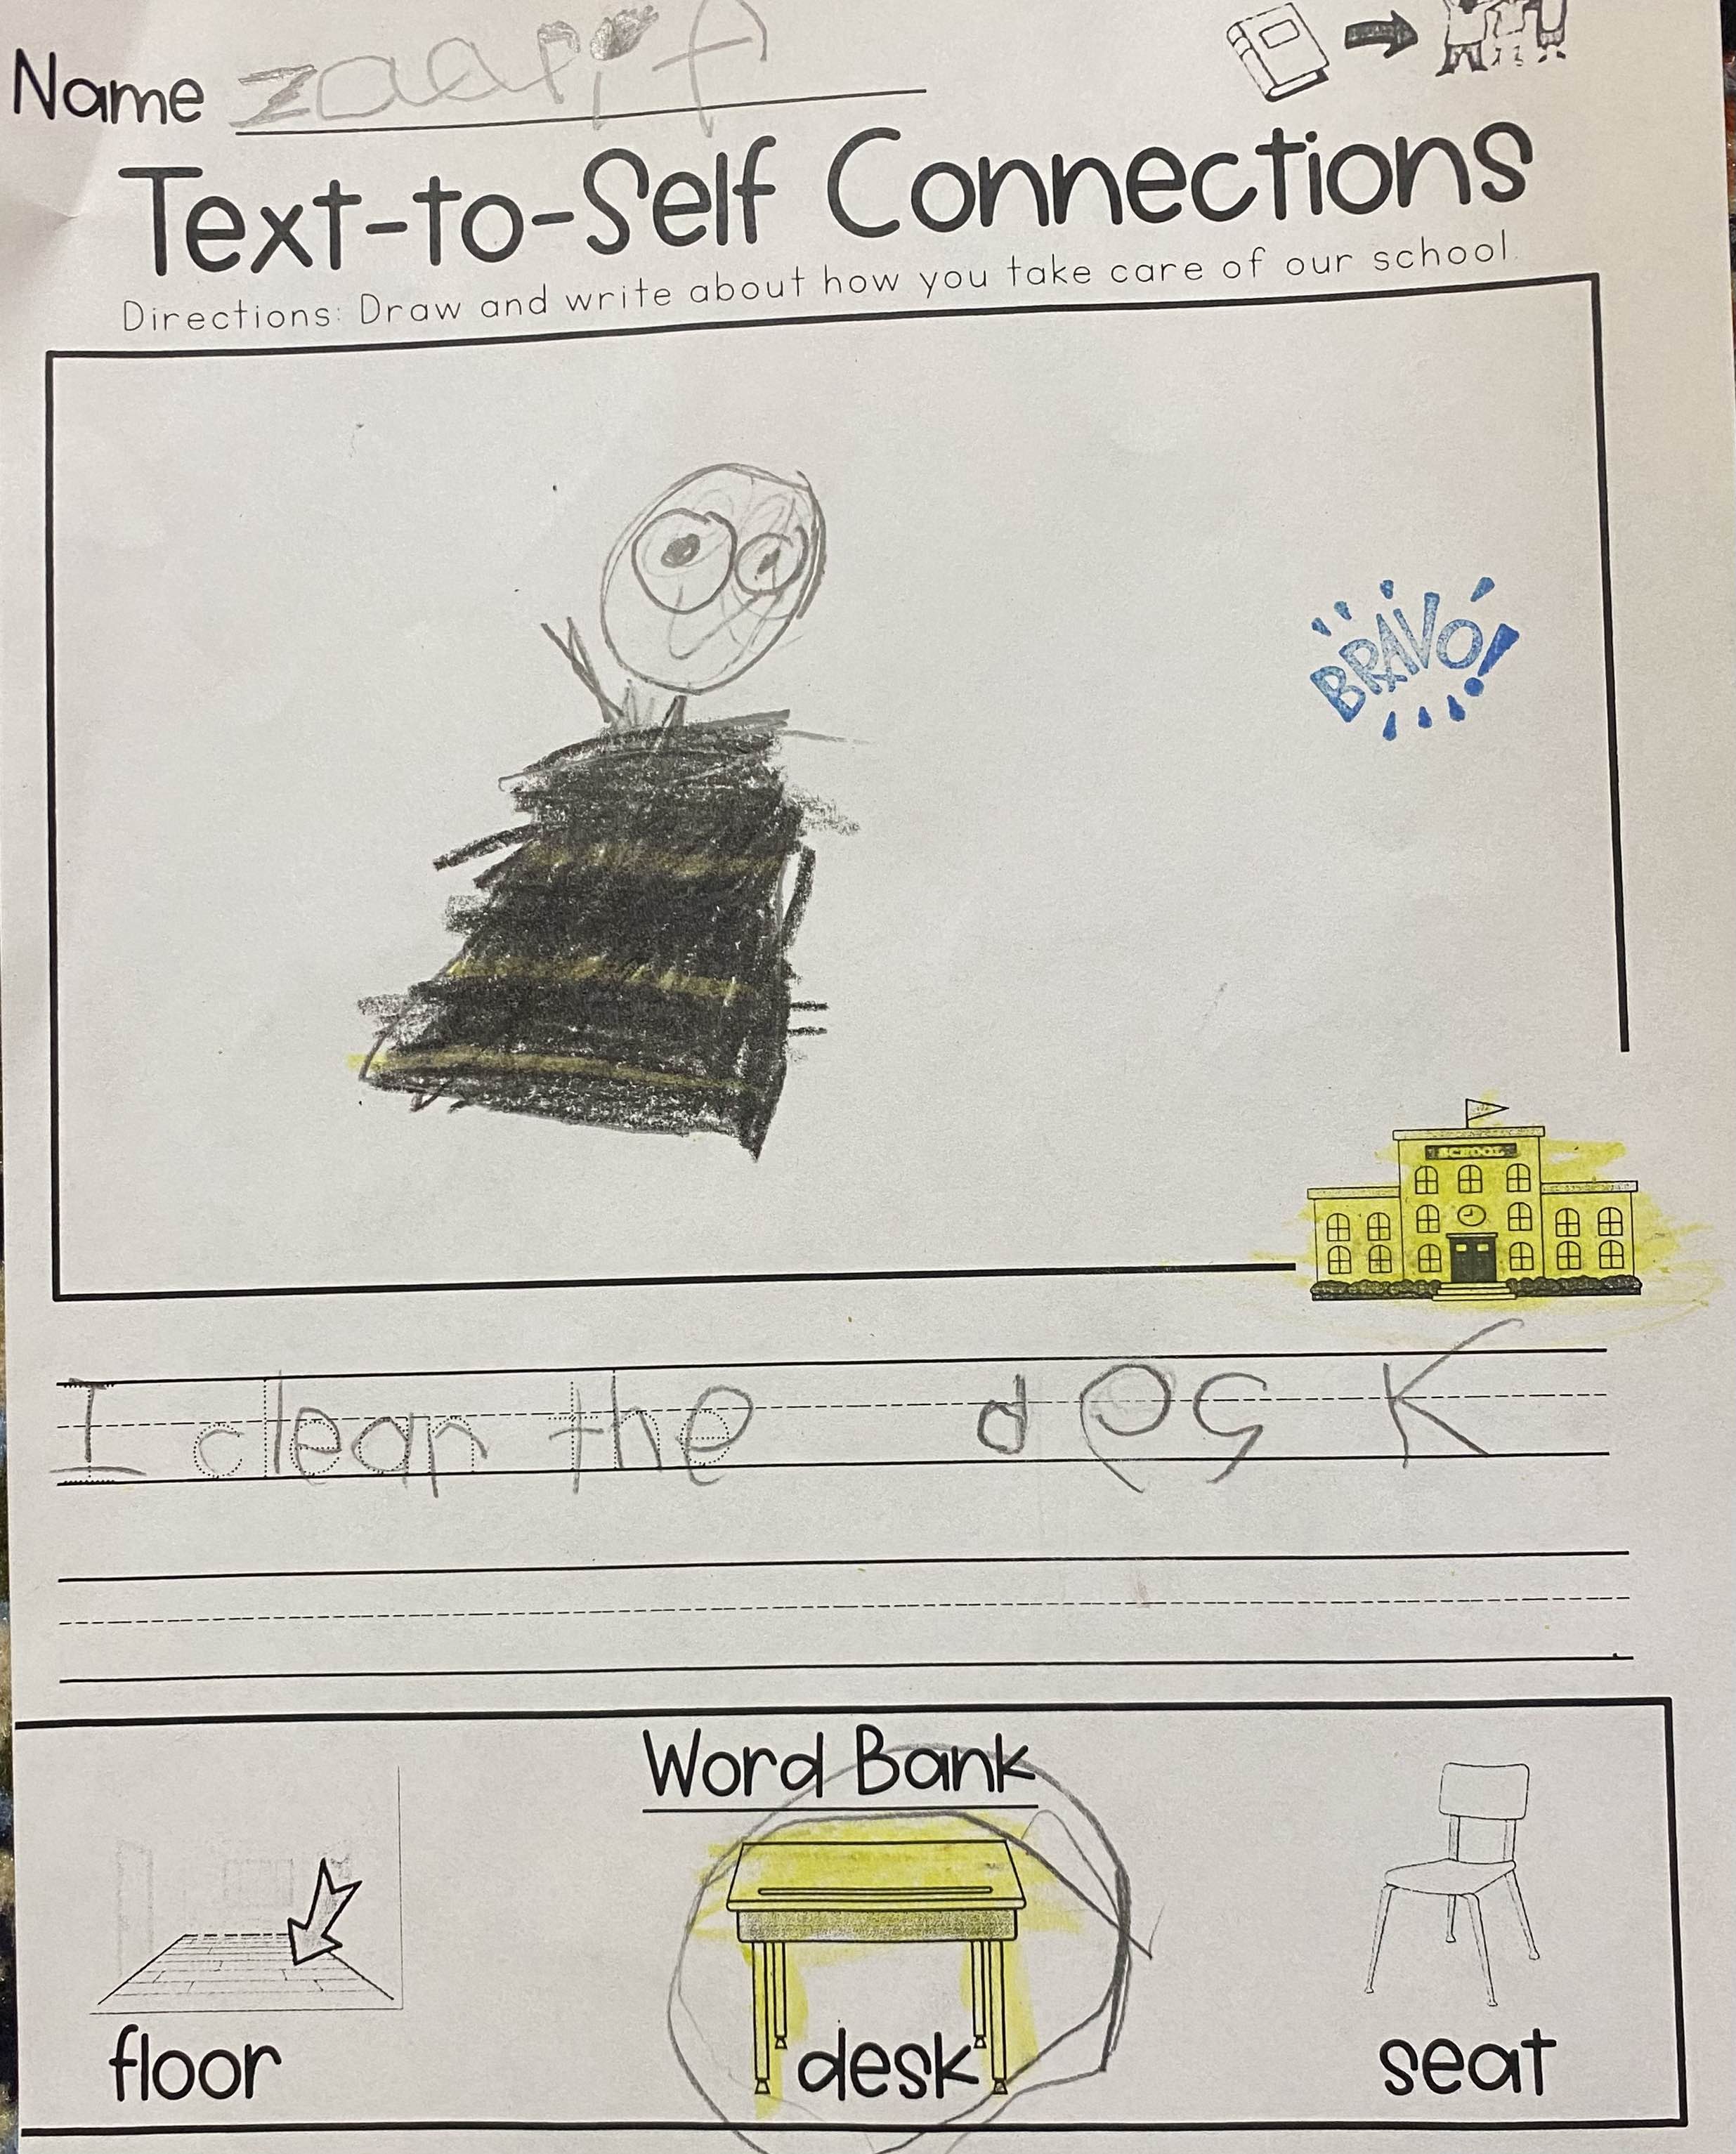 Name zaarif
Text-to-Self Connections
Directions: Draw and write about how you take care of our school.
BRAVO!
SCHOOL
I clean the desk
Word Bank
floor
desk
seat